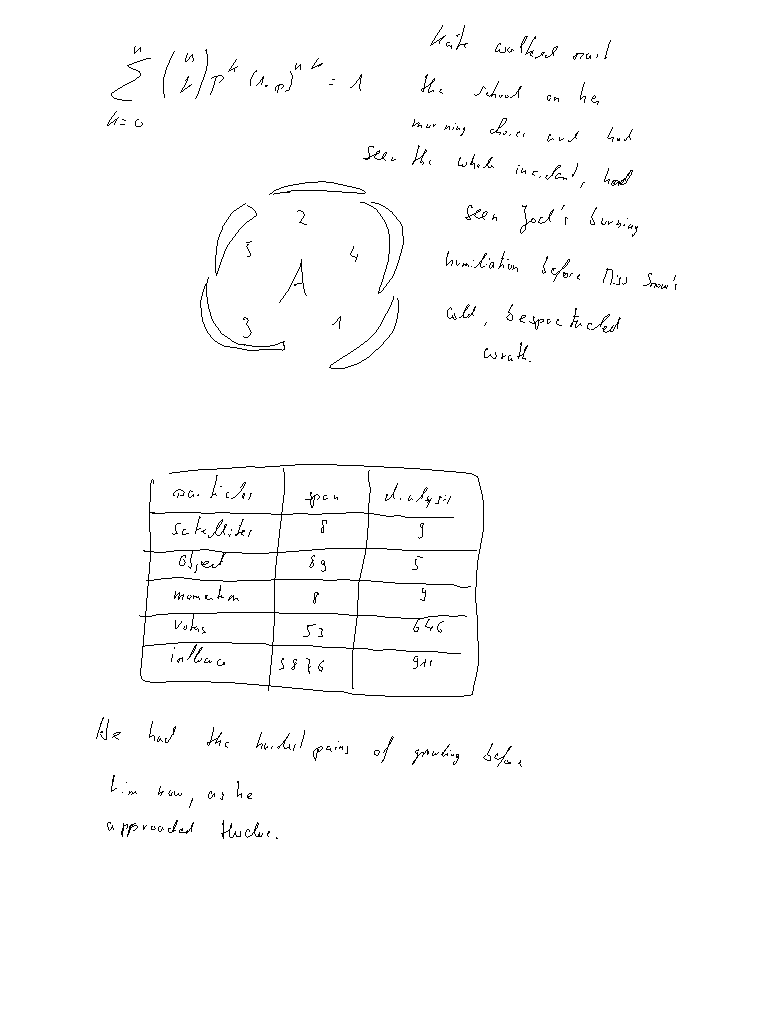 \sum_{k=0}^{n} \binom{n}{k} p^k (1-p)^{n-k} = 1
Kate walked past
the school on her
morning chores and had
seen the whole incident, had
seen Joel's burning
humiliation before Miss Snow's
cold, bespectacled
wrath.
2
5 4
A
3 1
particles span analysis
satellites 8 9
object 89 5
momentum 8 9
votes 53 646
influence 5876 911
He had the hardest pains of growing before
him now, as he
approached twelve.